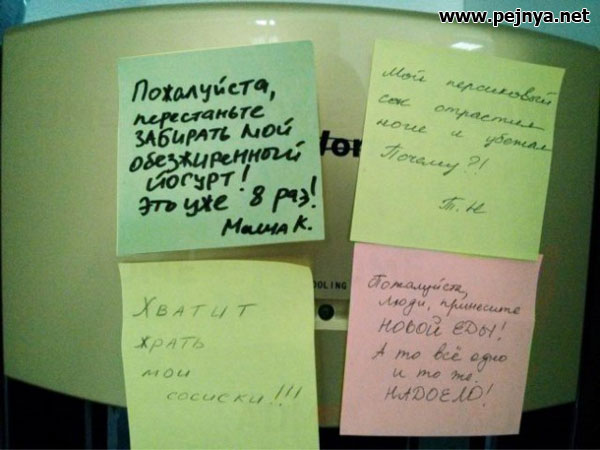 www.pejnya.net
Пожалуйста,
перестаньте
ЗАБИРАТЬ МОЙ
обезжиренный
йогурт!
Это уже 8 раз!
Маша К.
Мой персиковый
сок отрастил
ноги и убежал
Почему?!
Т.Н
OOLING
Хватит
жрать
мои
сосиски!!!
Пожалуйста,
люди, принесите
НОВОЙ ЕДЫ!
А то всё одно
и то же.
НАДОЕЛО!